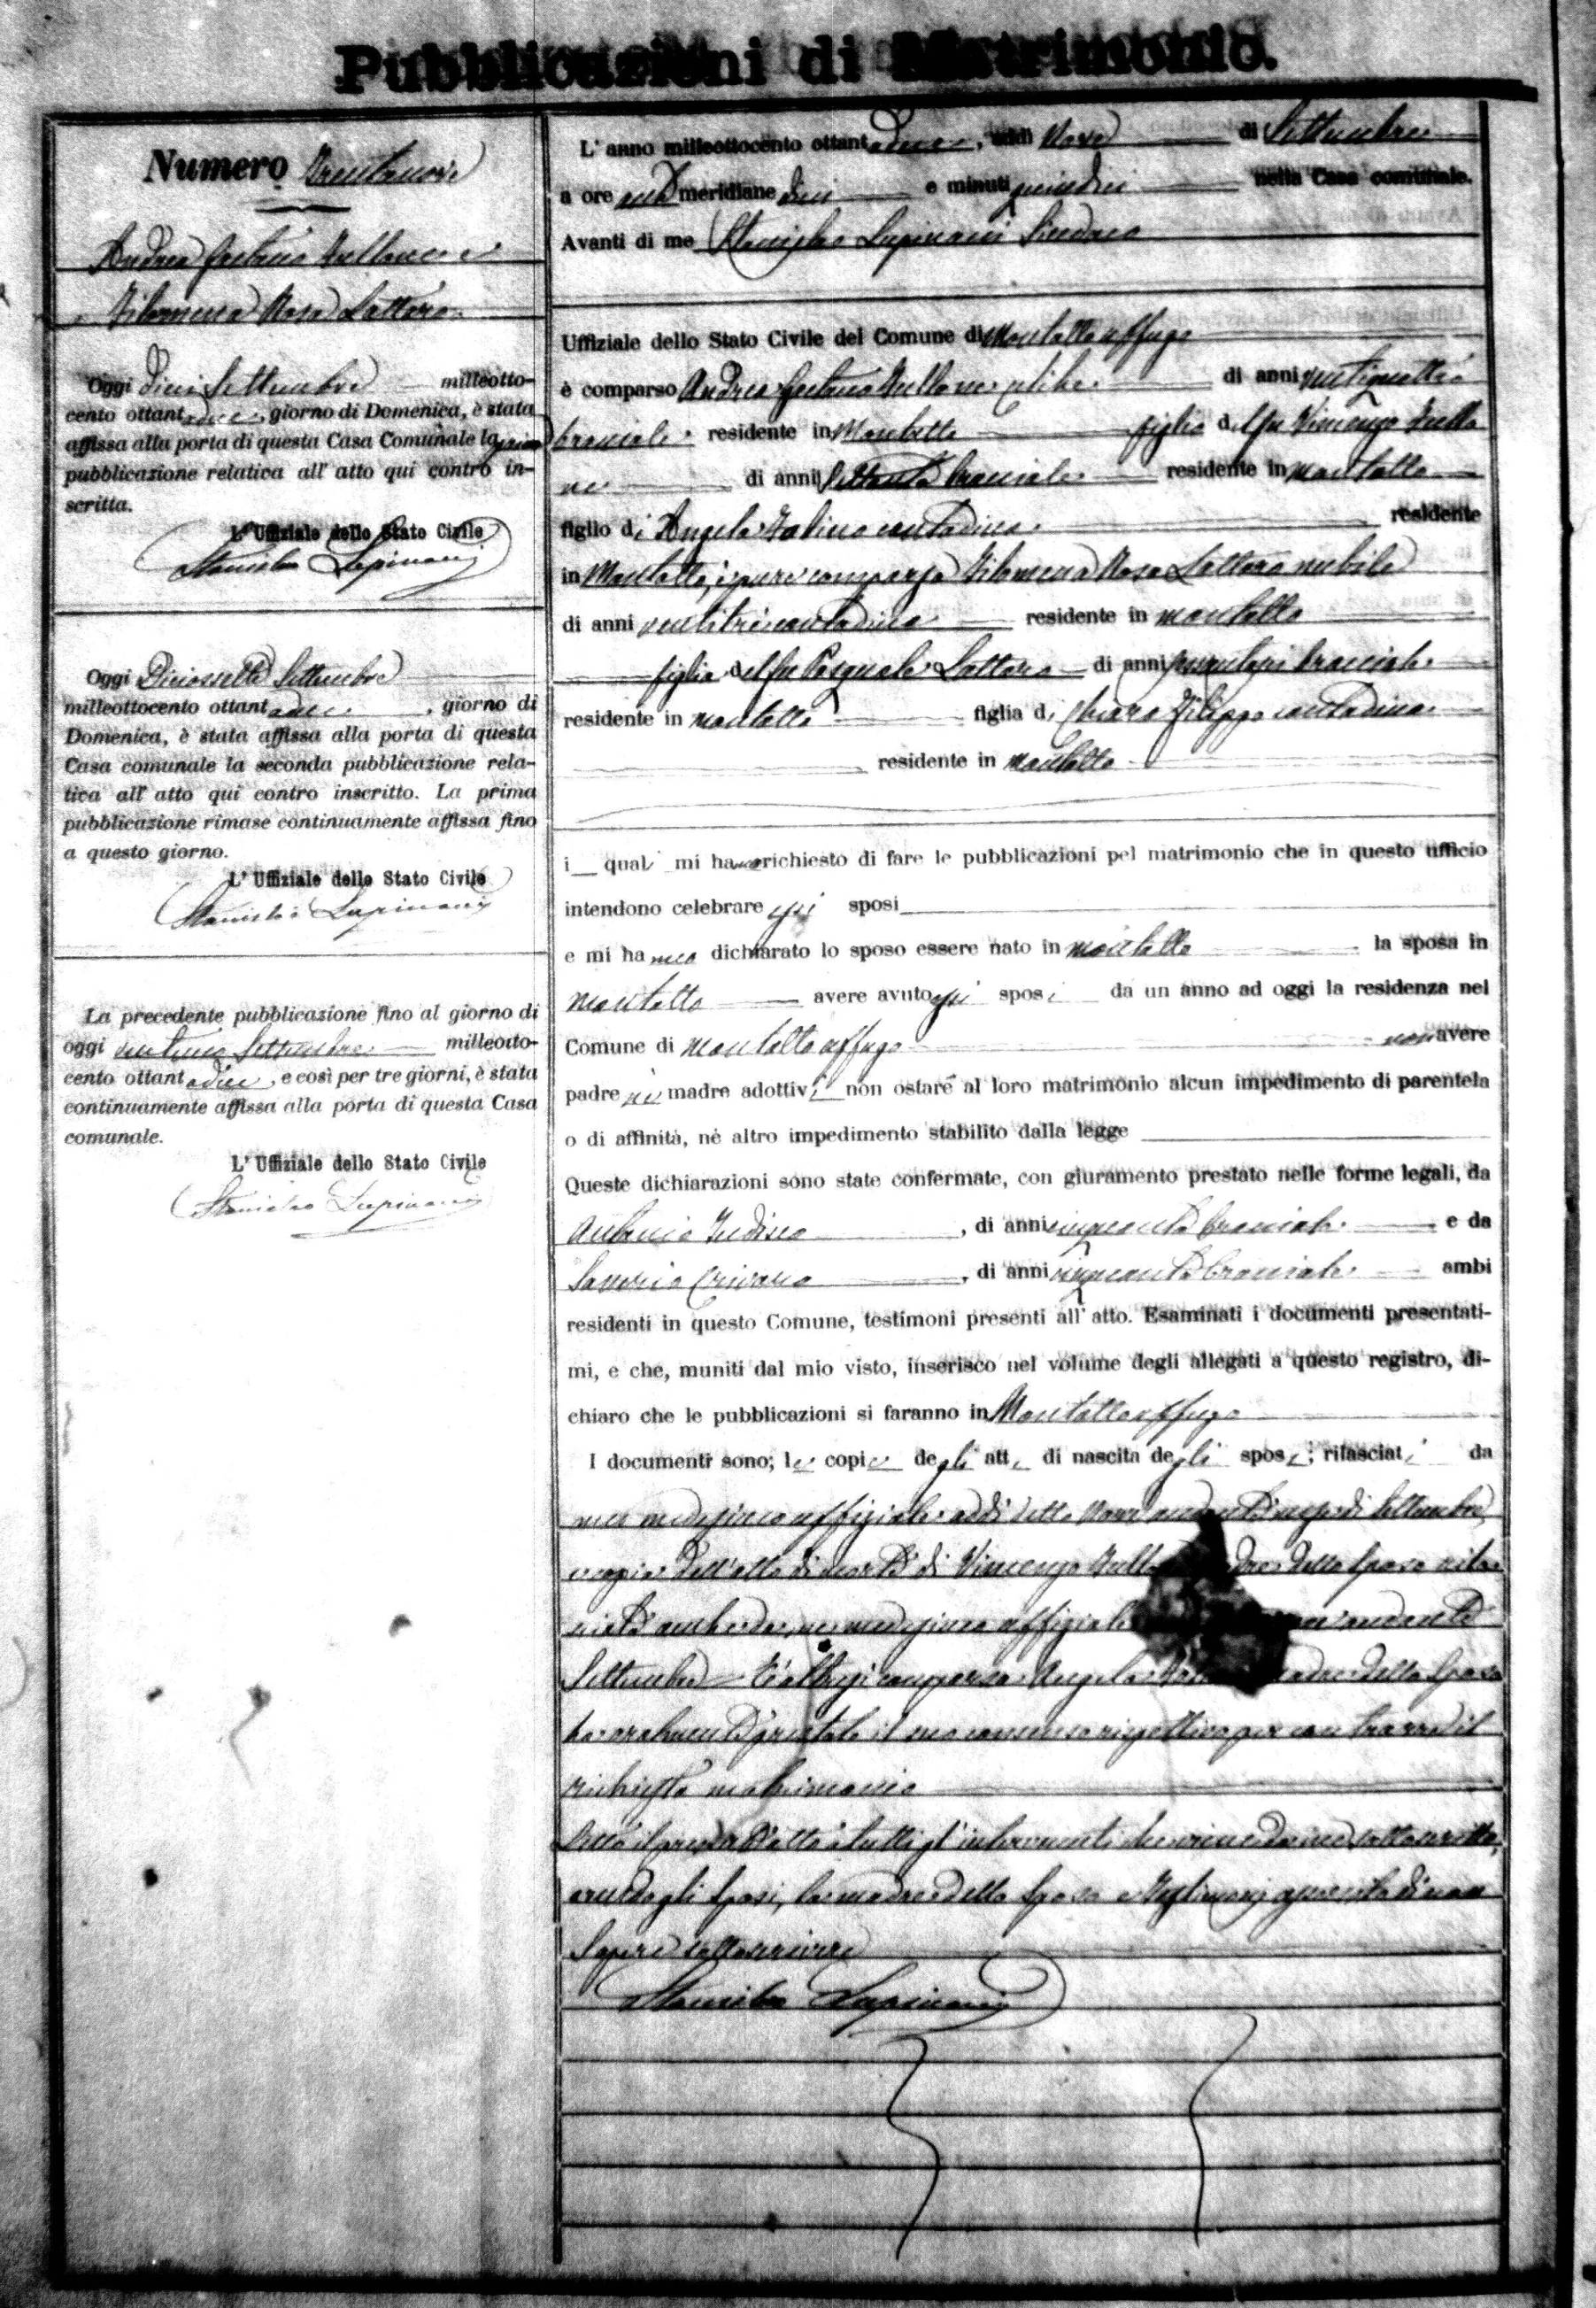 Pubblicazioni di Matrimonio.
Numero Trentanove
Andrea Gaetano Nullone e
Filomena Rosa Lattaro
Oggi dieci Settembre milleotto-
cento ottantadue, giorno di Domenica, è stata
affissa alla porta di questa Casa Comunale la prima
pubblicazione relativa all' atto qui contro in-
scritta.
L' Uffiziale dello Stato Civile
Stanislao Lupinacci
Oggi Diciassette Settembre
milleottocento ottantadue, giorno di
Domenica, è stata affissa alla porta di questa
Casa comunale la seconda pubblicazione rela-
tiva all' atto qui contro inscritto. La prima
pubblicazione rimase continuamente affissa fino
a questo giorno.
L' Uffiziale dello Stato Civile
Stanislao Lupinacci
La precedente pubblicazione fino al giorno di
oggi ventuno Settembre milleotto-
cento ottantadue, e così per tre giorni, è stata
continuamente affissa alla porta di questa Casa
comunale.
L' Uffiziale dello Stato Civile
Stanislao Lupinacci
L' anno milleottocento ottantadue, addì Nove di Settembre
a ore antimeridiane dieci e minuti quindici nella Casa comunale.
Avanti di me Stanislao Lupinacci Sindaco
Uffiziale dello Stato Civile del Comune di Montalto uffugo
è comparso Andrea Gaetano celibe di anni ventiquattro
bracciale residente in Montalto figlio del fu Vincenzo
di anni settanta bracciale residente in Montalto
figlio di Angela contadina residente
in Montalto, è pure comparsa Filomena Rosa Lattaro nubile
di anni ventitre contadina residente in Montalto
figlia del fu Pasquale Lattaro di anni bracciale
residente in Montalto figlia di Chiara Filippo contadina
residente in Montalto
i quali mi hanno richiesto di fare le pubblicazioni pel matrimonio che in questo ufficio
intendono celebrare essi sposi
e mi hanno dichiarato lo sposo essere nato in Montalto la sposa in
Montalto avere avuto essi sposi da un anno ad oggi la residenza nel
Comune di Montalto uffugo non avere
padre nè madre adottivi non ostare al loro matrimonio alcun impedimento di parentela
o di affinità, nè altro impedimento stabilito dalla legge
Queste dichiarazioni sono state confermate, con giuramento prestato nelle forme legali, da
Antonio, di anni cinquanta bracciale e da
Saverio Crivaro, di anni cinquanta bracciale ambi
residenti in questo Comune, testimoni presenti all' atto. Esaminati i documenti presentati-
mi, e che, muniti dal mio visto, inserisco nel volume degli allegati a questo registro, di-
chiaro che le pubblicazioni si faranno in Montalto uffugo
I documenti sono; le copie degli atti di nascita degli sposi; rilasciati da
me medesimo uffiziale addì detto Nove andante mese di Settembre
e copia dell'atto di morte di Vincenzo padre dello sposo
me medesimo uffiziale andante
Settembre È altresì comparsa Angela madre dello sposo
ha oralmente prestato il suo consenso rispettivo per contrarre il
richiesto matrimonio
Letto il presente atto a tutti gl' intervenuti che viene da me sottoscritto,
avendo gli sposi, la madre dello sposo e testimoni asserito di non
sapere sottoscrivere
Stanislao Lupinacci